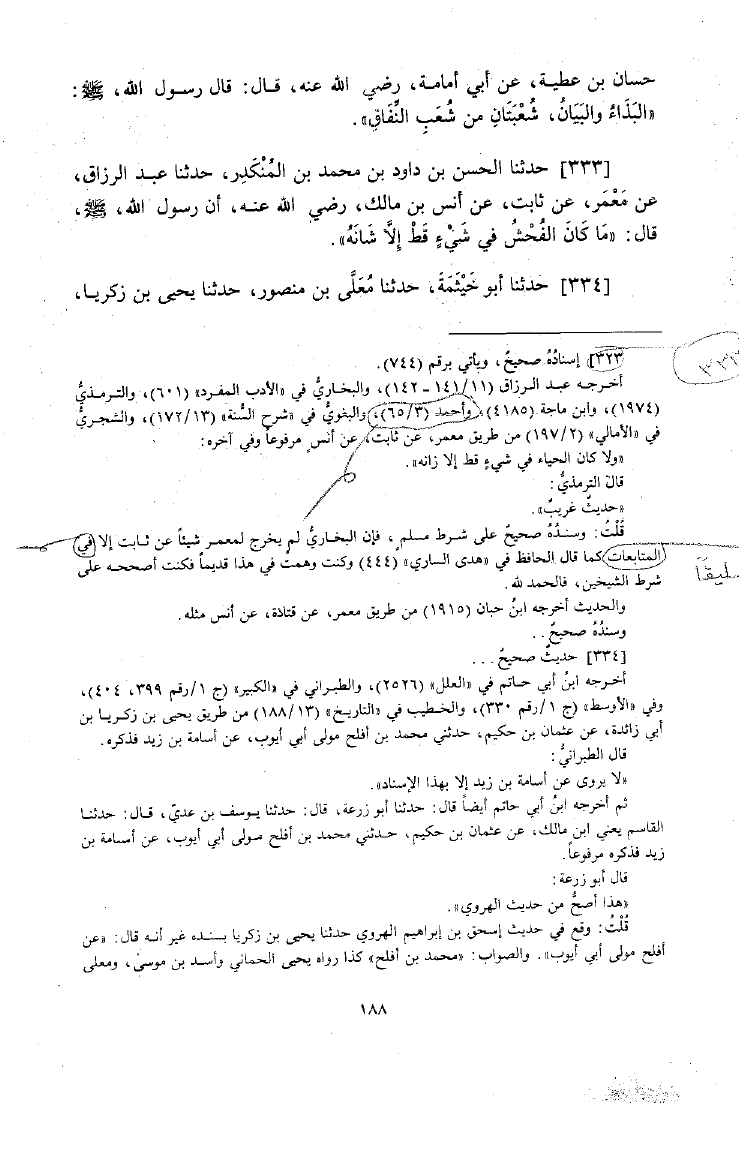 حسان بن عطية، عن أبي أمامة، رضي الله عنه، قال: قال رسول الله، ﷺ:
«البَذَاءُ والبَيَانُ، شُعْبَتَانِ من شُعَبِ النِّفَاقِ».
[٣٣٣] حدثنا الحسن بن داود بن محمد بن المُنْكَدِر، حدثنا عبد الرزاق،
عن مَعْمَر، عن ثابت، عن أنس بن مالك، رضي الله عنه، أن رسول الله، ﷺ،
قال: «مَا كَانَ الفُحْشُ في شَيْءٍ قَطُّ إِلَّا شَانَهُ».
[٣٣٤] حدثنا أبو خَيْثَمَةَ، حدثنا مُعَلَّى بن منصور، حدثنا يحيى بن زكريا،
[٣٢٣] إسنادُهُ صحيحٌ، ويأتي برقم (٧٤٤).
٣٣٣
أخرجه عبد الرزاق (١١/ ١٤١ - ١٤٢)، والبخاريُّ في «الأدب المفرد» (٦٠١)، والترمذيُّ
(١٩٧٤)، وابن ماجة (٤١٨٥)، وأحمد (٣/ ٦٥)، والبغويُّ في «شرح السُّنة» (١٣/ ١٧٢)، والشجريُّ
في «الأمالي» (٢/ ١٩٧) من طريق معمر، عن ثابت، عن أنسٍ مرفوعاً وفي آخره:
«ولا كان الحياء في شيءٍ قط إلا زانه».
قال الترمذيُّ:
«حديثٌ غريبٌ».
قُلْتُ: وسندُهُ صحيحٌ على شرط مسلمٍ، فإن البخاريَّ لم يخرج لمعمر شيئاً عن ثابت إلا في
المتابعات كما قال الحافظ في «هدى الساري» (٤٤٤) وكنت وهمتُ في هذا قديماً فكنت أصححه على
شرط الشيخين، فالحمد لله.
والحديث أخرجه ابنُ حبان (١٩١٥) من طريق معمر، عن قتادة، عن أنس مثله.
وسندُهُ صحيحٌ..
[٣٣٤] حديثٌ صحيحٌ...
أخرجه ابنُ أبي حاتم في «العلل» (٢٥٢٦)، والطبراني في «الكبير» (ج ١/ رقم ٣٩٩، ٤٠٤)،
وفي «الأوسط» (ج ١/ رقم ٣٣٠)، والخطيب في «التاريخ» (١٣/ ١٨٨) من طريق يحيى بن زكريا بن
أبي زائدة، عن عثمان بن حكيم، حدثني محمد بن أفلح مولى أبي أيوب، عن أسامة بن زيد فذكره.
قال الطبرانيُّ:
«لا يروى عن أسامة بن زيد إلا بهذا الإسناد».
ثم أخرجه ابنُ أبي حاتم أيضاً قال: حدثنا أبو زرعة، قال: حدثنا يوسف بن عديّ، قال: حدثنا
القاسم يعني ابن مالك، عن عثمان بن حكيم، حدثني محمد بن أفلح مولى أبي أيوب، عن أسامة بن
زيد فذكره مرفوعاً.
قال أبو زرعة:
«هذا أصحُّ من حديث الهروي».
قُلْتُ: وقع في حديث إسحق بن إبراهيم الهروي حدثنا يحيى بن زكريا بسنده غير أنه قال: «عن
أفلح مولى أبي أيوب». والصواب: «محمد بن أفلح» كذا رواه يحيى الحماني وأسد بن موسىٰ، ومعلى
١٨٨